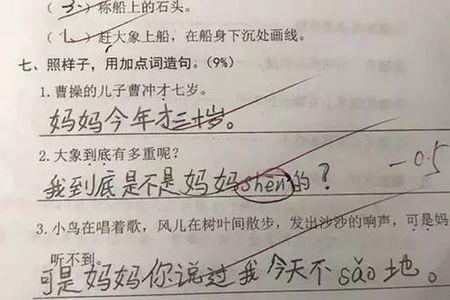 (3)称船上的石头。
(1)赶大象上船，在船身下沉处画线。
七、照样子，用加点词造句。(9%)
1.曹操的儿子曹冲才七岁。
妈妈今年才三十岁。
2.大象到底有多重呢？
我到底是不是妈妈shen的？
-0.5
3.小鸟在唱着歌，风儿在树叶间散步，发出沙沙的响声，可是妈
听不到。
可是妈妈你说过我今天不sǎo地。